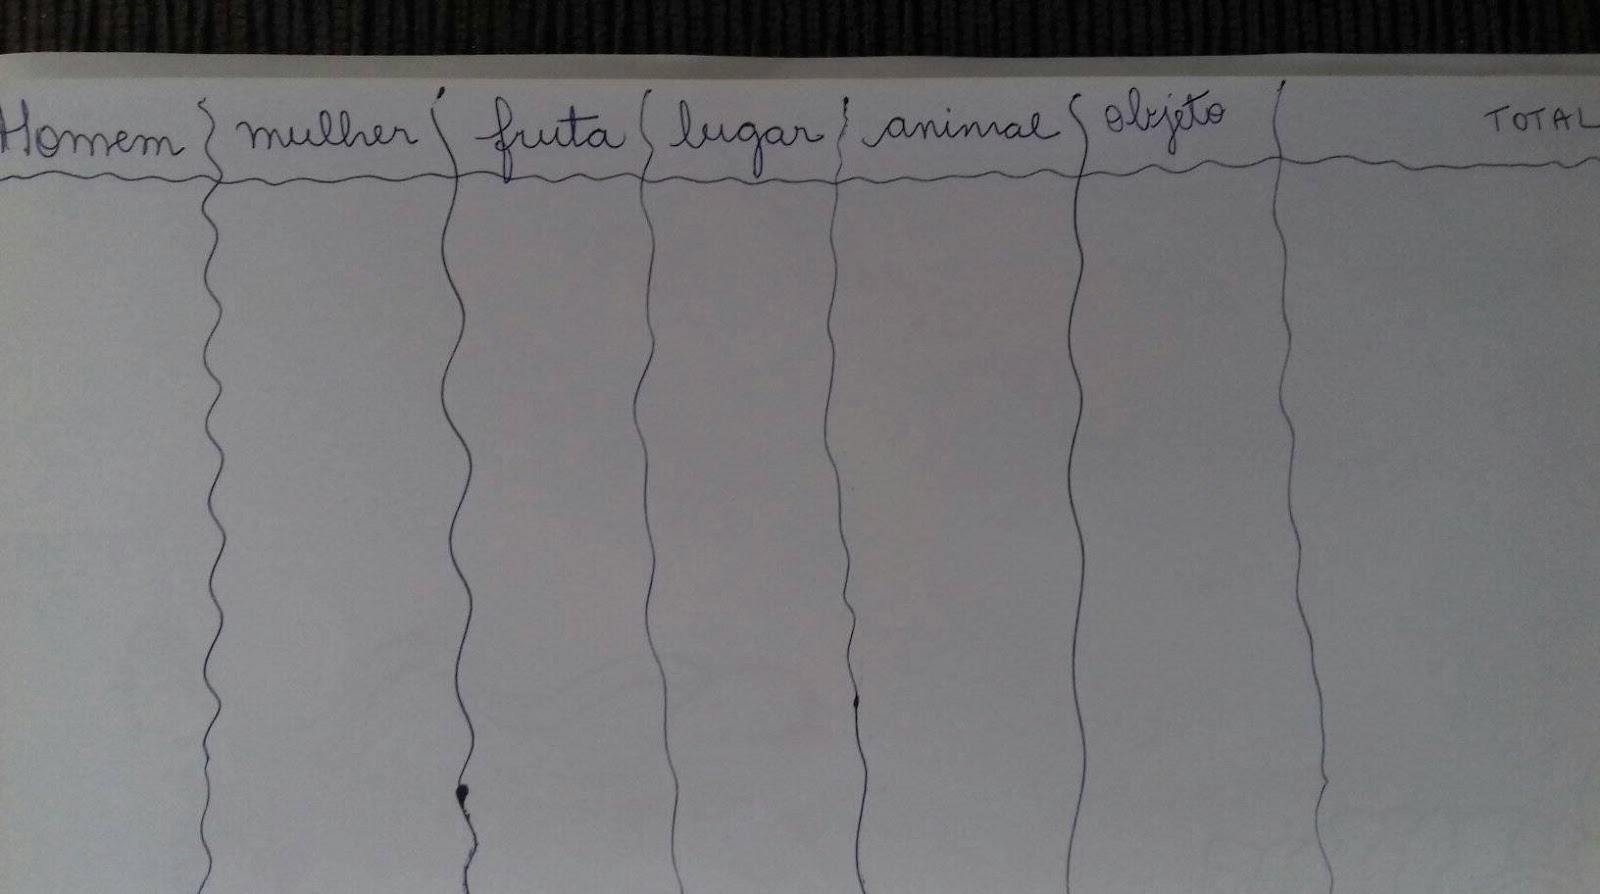 Homem mulher fruta lugar animal objeto TOTAL